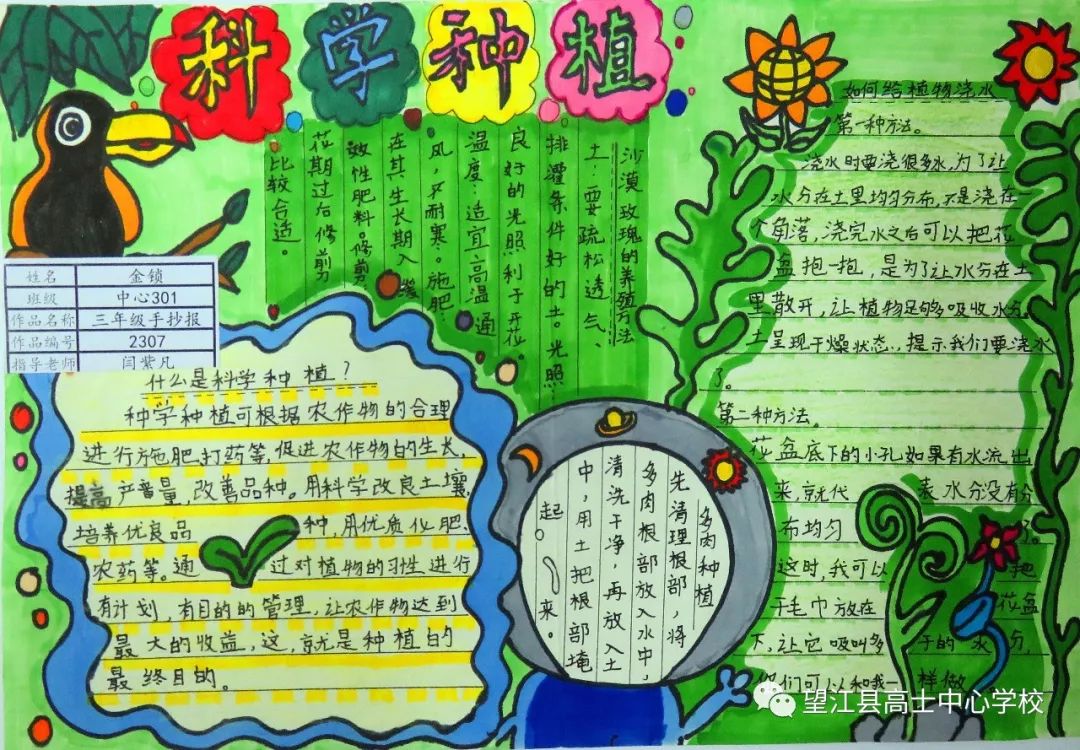 科学种植
姓名 金锁
班级 中心301
作品名称 三年级手抄报
作品编号 2307
指导老师 闫紫凡
沙漠玫瑰的养殖方法
土：要疏松透气、
排灌条件好的土。光照：
良好的光照利于开花。
温度：适宜高温通
风，不耐寒。施肥
在其生长期入
效性肥料。修剪
花期过后修剪
比较合适。
什么是科学种植？
种学种植可根据农作物的合理
进行施肥、打药等，促进农作物的生长，
提高产量，改善品种。用科学改良土壤，
培养优良品种，用优质化肥、
农药等。通过对植物的习性进行
有计划，有目的的管理，让农作物达到
最大的收益，这，就是种植的
最终目的。
多肉种植
先清理根部，将
多肉根部放入水中，
清洗干净，再放入土
中，用土把根部埋
起来。
如何给植物浇水
第一种方法。
浇水时要浇很多水，为了让
水分在土里均匀分布，不是浇在
个角落，浇完水之后可以把花
盆抱一抱，是为了让水分在土
里散开，让植物足够吸收水分。
土呈现干燥状态，提示我们要浇水
了。
第二种方法。
花盆底下的小孔如果有水流出
来，就代表水分没有分
布均匀了。
这时，我可以把
干毛巾放在花盆
下，让它吸叫多于的水分，
你们可以和我一样做
望江县高士中心学校